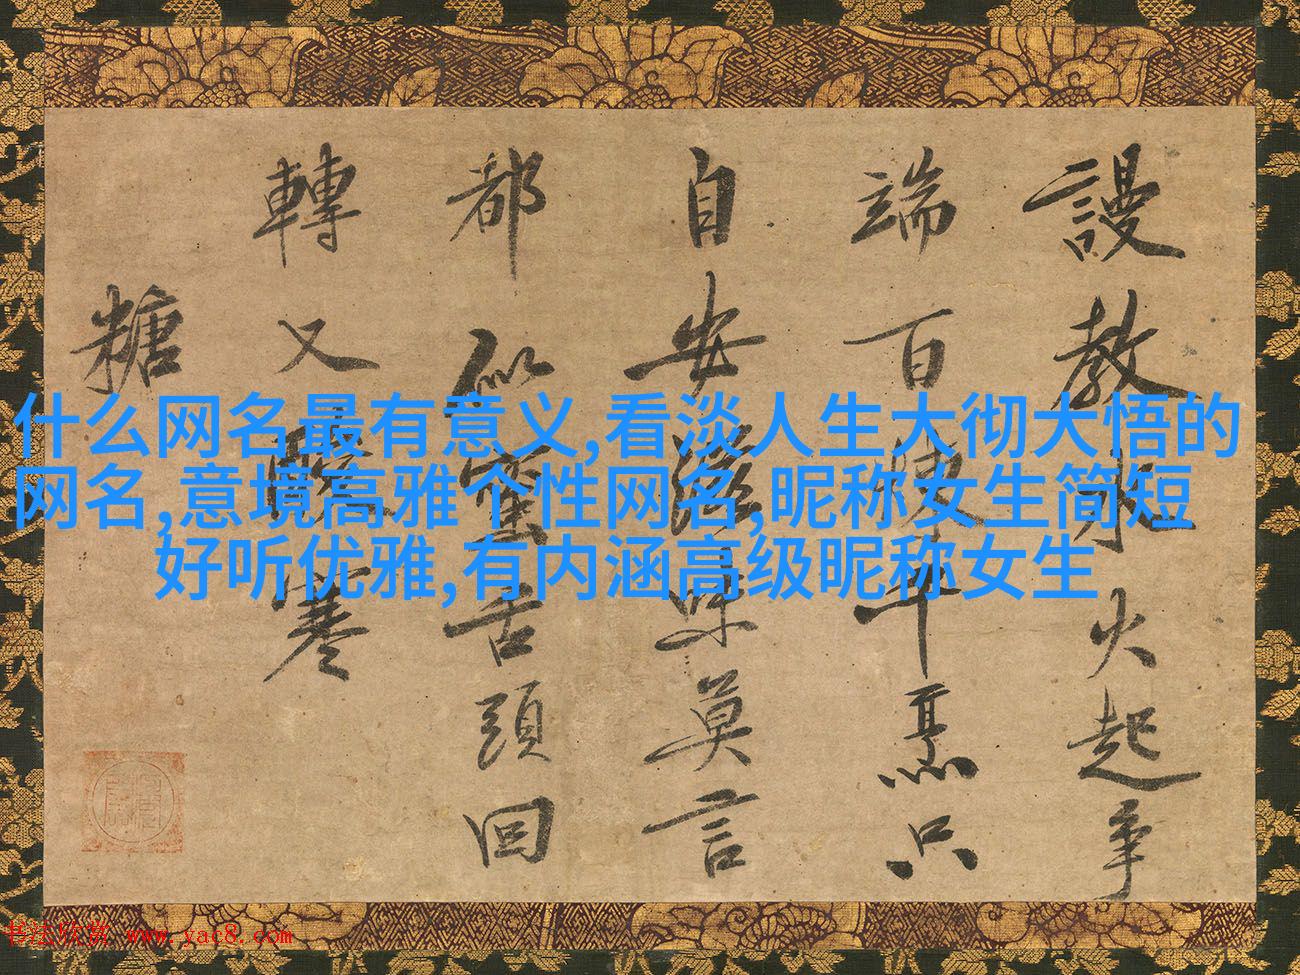 什么网名最有意义,看淡人生大彻大悟的
网名,意境高雅个性网名,昵称女生简短
好听优雅,有内涵高级昵称女生
謾教水火起爭
端百煉千熬只
自安滋味莫言
都似蜜舌頭回
轉又寒
糖
书法欣赏 www.yac8.com